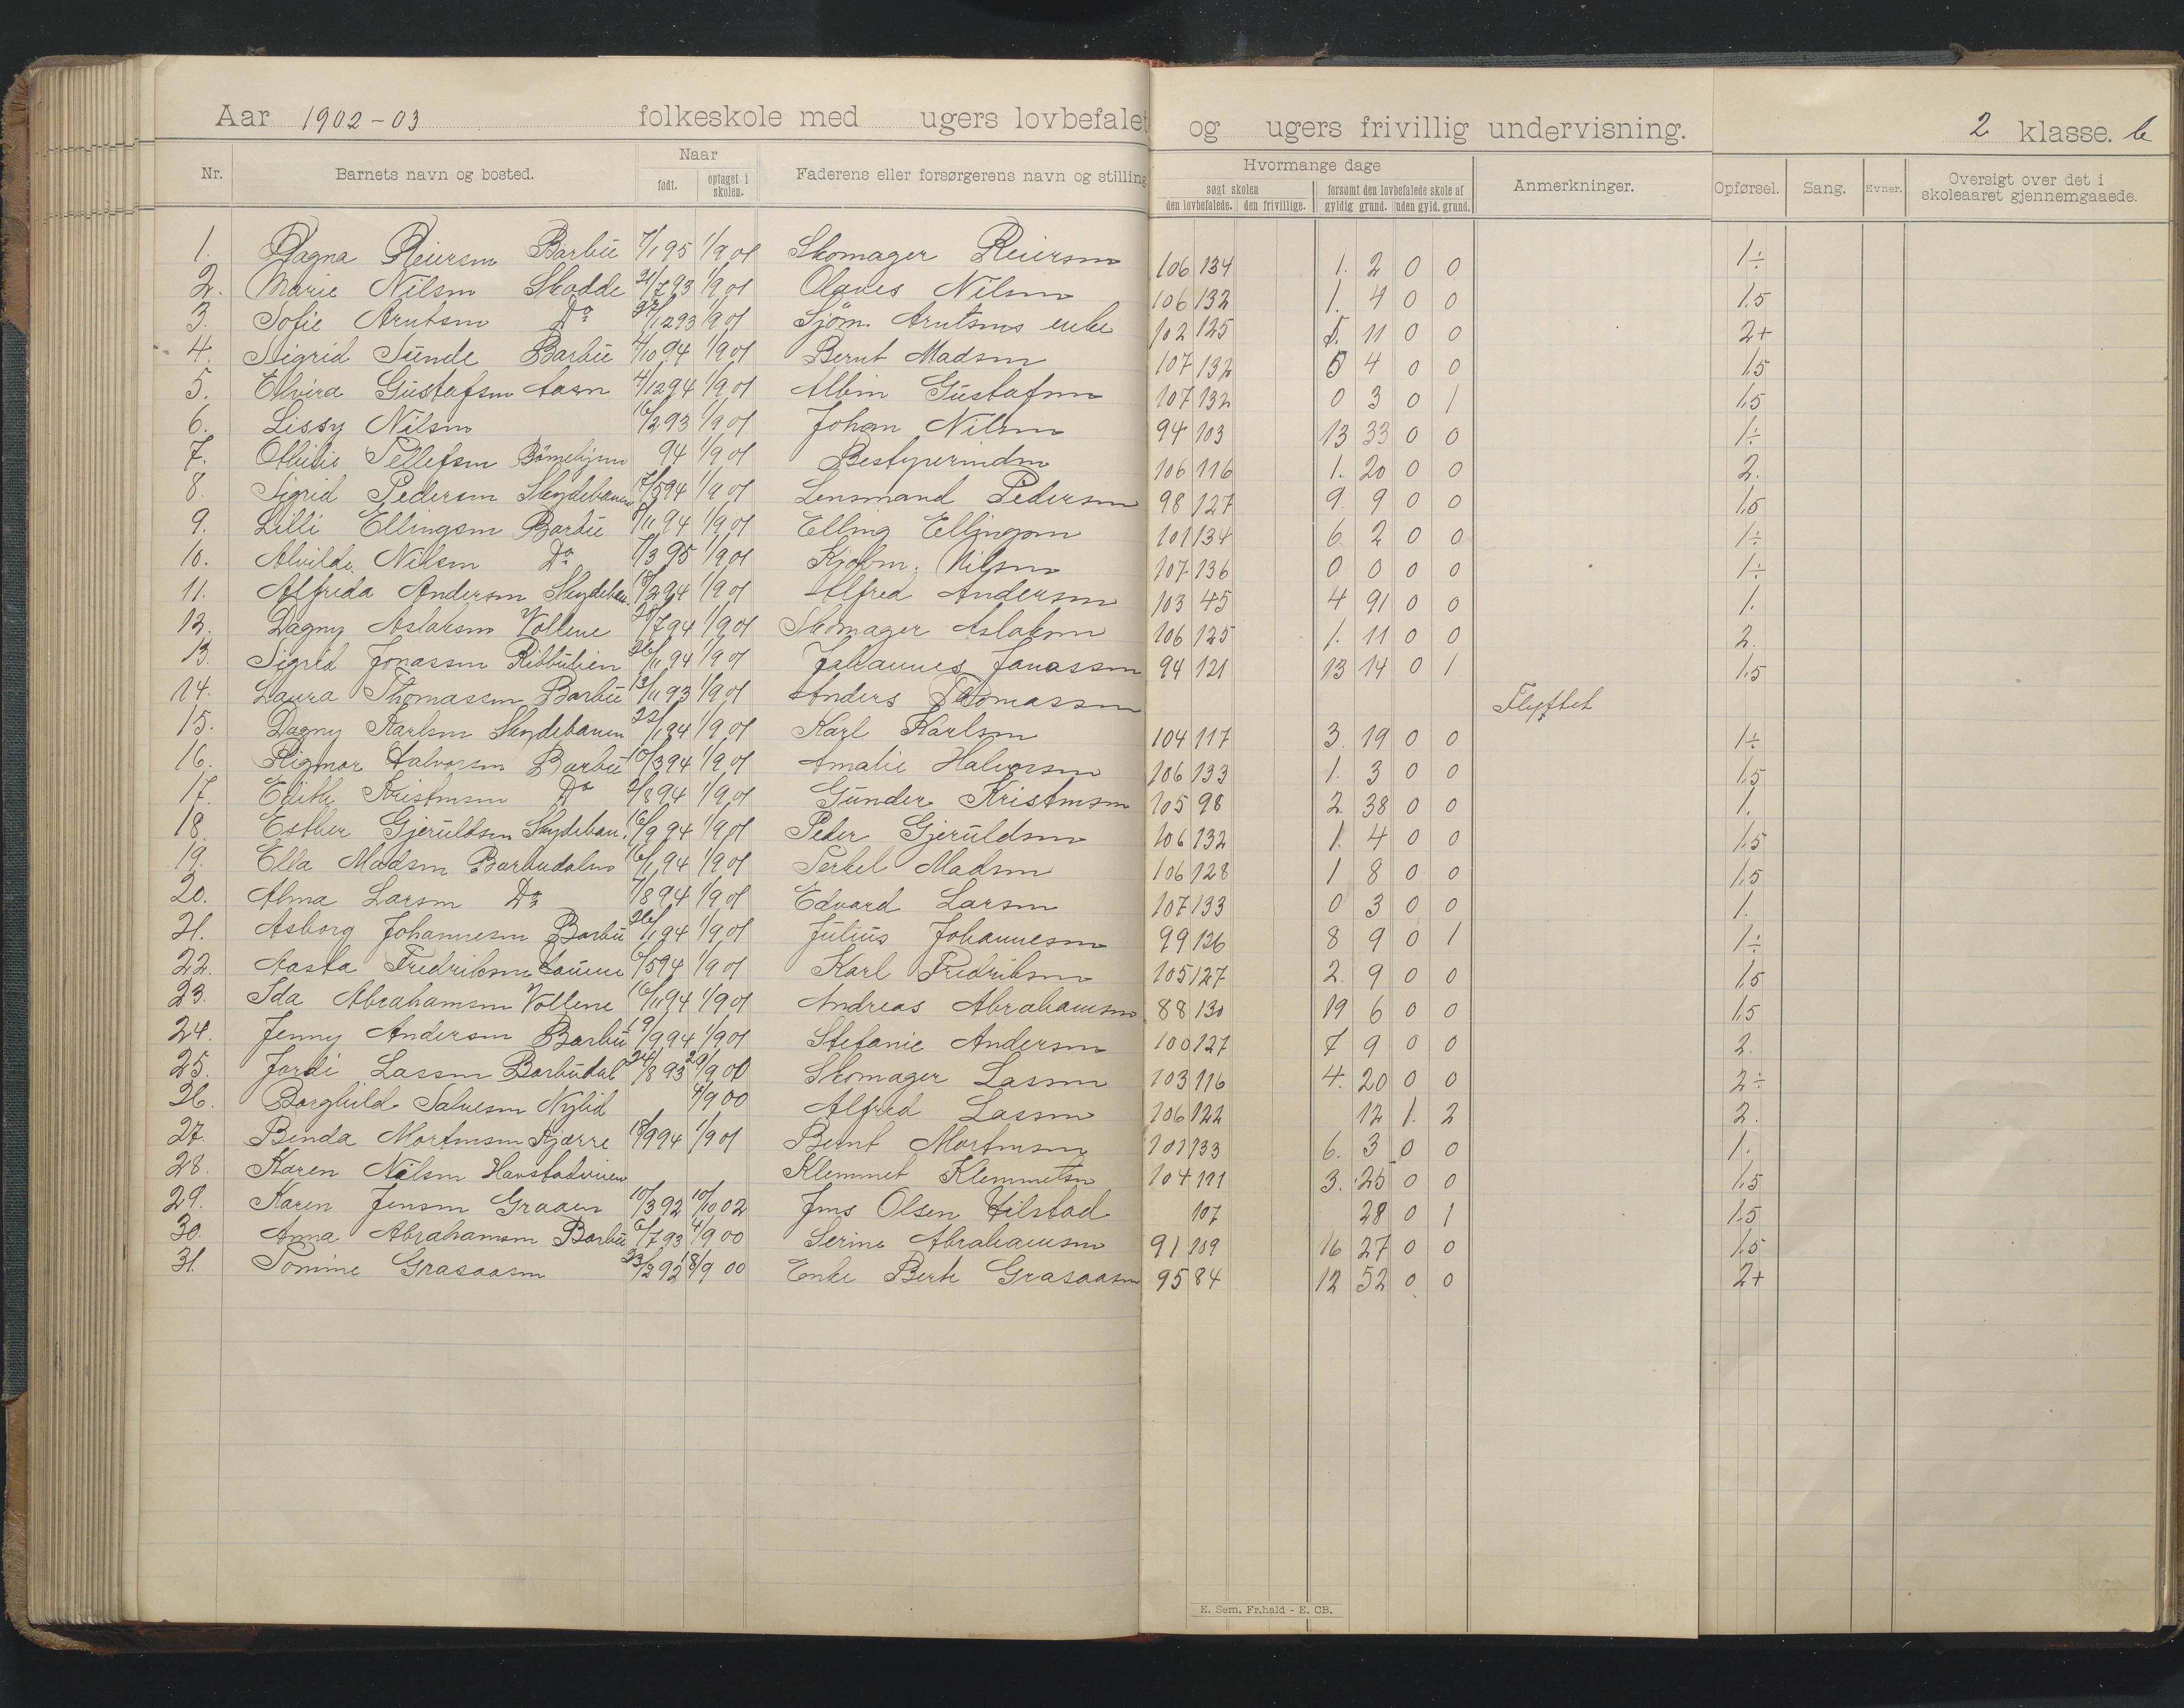 Aar 1902-03 folkeskole med ugers lovbefalet og ugers frivillig undervisning. 2 klasse. b
Nr. Barnets navn og bosted. Naar født. optaget i skolen. Faderens eller forsørgerens navn og stilling Hvormange dage søgt skolen den lovbefalede. den frivillige. forsømt den lovbefalede skole af gyldig grund. uden gyld. grund. Anmerkninger. Opførsel. Sang. Evner. Oversigt over det i skoleaaret gjennemgaaede.
1. Dagna Reiersen Barbu 7/1 95 1/9 01 Skomager Reiersen 106 134 1. 2 0 0 1÷
2. Marie Nilsen Skodde 21/7 93 1/9 01 Olaves Nilsen 106 132 1. 4 0 0 1.5
3. Sofie Arntsen Do 1293 1/9 01 Sjöm. Arntsens enke 102 125 5. 11 0 0 2+
4. Sigrid Sunde Barbu 4/10 94 1/9 01 Bernt Madsen 107 132 0 4 0 0 1.5
5. Elvira Gustafsen 4/12 94 1/9 01 Albin Gustafsen 107 132 0 3 0 1 1.5
6. Lissy Nilsen 16/2 93 1/9 01 Johan Nilsen 94 103 13 33 0 0 1÷
7. Pellefsen 94 1/9 01 106 116 1. 20 0 0 2.
8. Sigrid Pedersen Skydebanen 7/5 94 1/9 01 Lensmand Pedersen 98 127 9. 9 0 0 1.5
9. Lilli Ellingsen Barbu 8/11 94 1/9 01 Elling Ellingsen 101 134 6. 2 0 0 1÷
10. Alvilde Nilsen Do 7/3 95 1/9 01 Kjøbm. Nilsen 107 136 0 0 0 0 1÷
11. Alfrida Andersen Skydeban. 18/2 94 1/9 01 Alfred Andersen 103 45 4 91 0 0 1.
12. Dagny Aslaksen Vollene 20/7 94 1/9 01 Skomager Aslaksen 106 125 1. 11 0 0 2.
13. Sigrid Jonassen Ribbulien 26/11 94 1/9 01 Johannes Jonassen 94 121 13 14 0 1 1.5
14. Laura Thomassen Barbu 13/11 93 1/9 01 Anders Thomassen Flyttet
15. Dagny Karlsen Skydebanen 22/1 94 1/9 01 Karl Karlsen 104 117 3. 19 0 0 1÷
16. Rigmor Halvorsen Barbu 10/3 94 1/9 01 Amalie Halvorsen 106 133 1. 3 0 0 1.5
17. Edith Kristensen Do 2/8 94 1/9 01 Gunder Kristensen 105 98 2. 38 0 0 1.
18. Esther Gjeruldsen Skydeban. 16/9 94 1/9 01 Peder Gjeruldsen 106 132 1. 4 0 0 1.5
19. Ella Madsen Barbudalen 16/1 94 1/9 01 Terkel Madsen 106 128 1 8 0 0 1.5
20. Alma Larsen Do 7/8 94 1/9 01 Edvard Larsen 107 133 0 3 0 0 1.
21. Asborg Johannesen Barbu 26/1 94 1/9 01 Julius Johannesen 99 126 8 9 0 1 1÷
22. Aasta Fredriksen 6/5 94 1/9 01 Karl Fredriksen 105 127 2. 9 0 0 1.5
23. Ida Abrahamsen Vollene 16/11 94 1/9 01 Andreas Abrahamsen 88 130 19 6 0 0 1.5
24. Jenny Andersen Barbu 19/9 94 1/9 01 Stefanie Andersen 100 127 7 9 0 0 2.
25. Jordi Lassen Barbudal 24/8 93 29/9 00 Skomager Lassen 103 116 4. 20 0 0 2÷
26. Borghild Salvesen Nylid 4/9 00 Alfred Lassen 106 122 12 1. 2 2.
27. Benda Mortensen Kjærre 18/9 94 1/9 01 Bernt Mortensen 101 133 6. 3 0 0 1.
28. Karen Nilsen Havstadveien Klemmet Klemmetsen 104 111 3. 25 0 0 1.5
29. Karen Jensen Graaen 10/3 92 10/10 02 Jens Olsen Vilstad 107 28 0 1 1.5
30. Anna Abrahamsen Barbu 6/7 93 4/9 00 Serine Abrahamsen 91 109 16 27 0 0 1.5
31. Tomine Grasaasen 23/2 92 18/9 00 Enke Berte Grasaasen 95 84 12 52 0 0 2+
E. Sem, Fr.hald - E. CB.